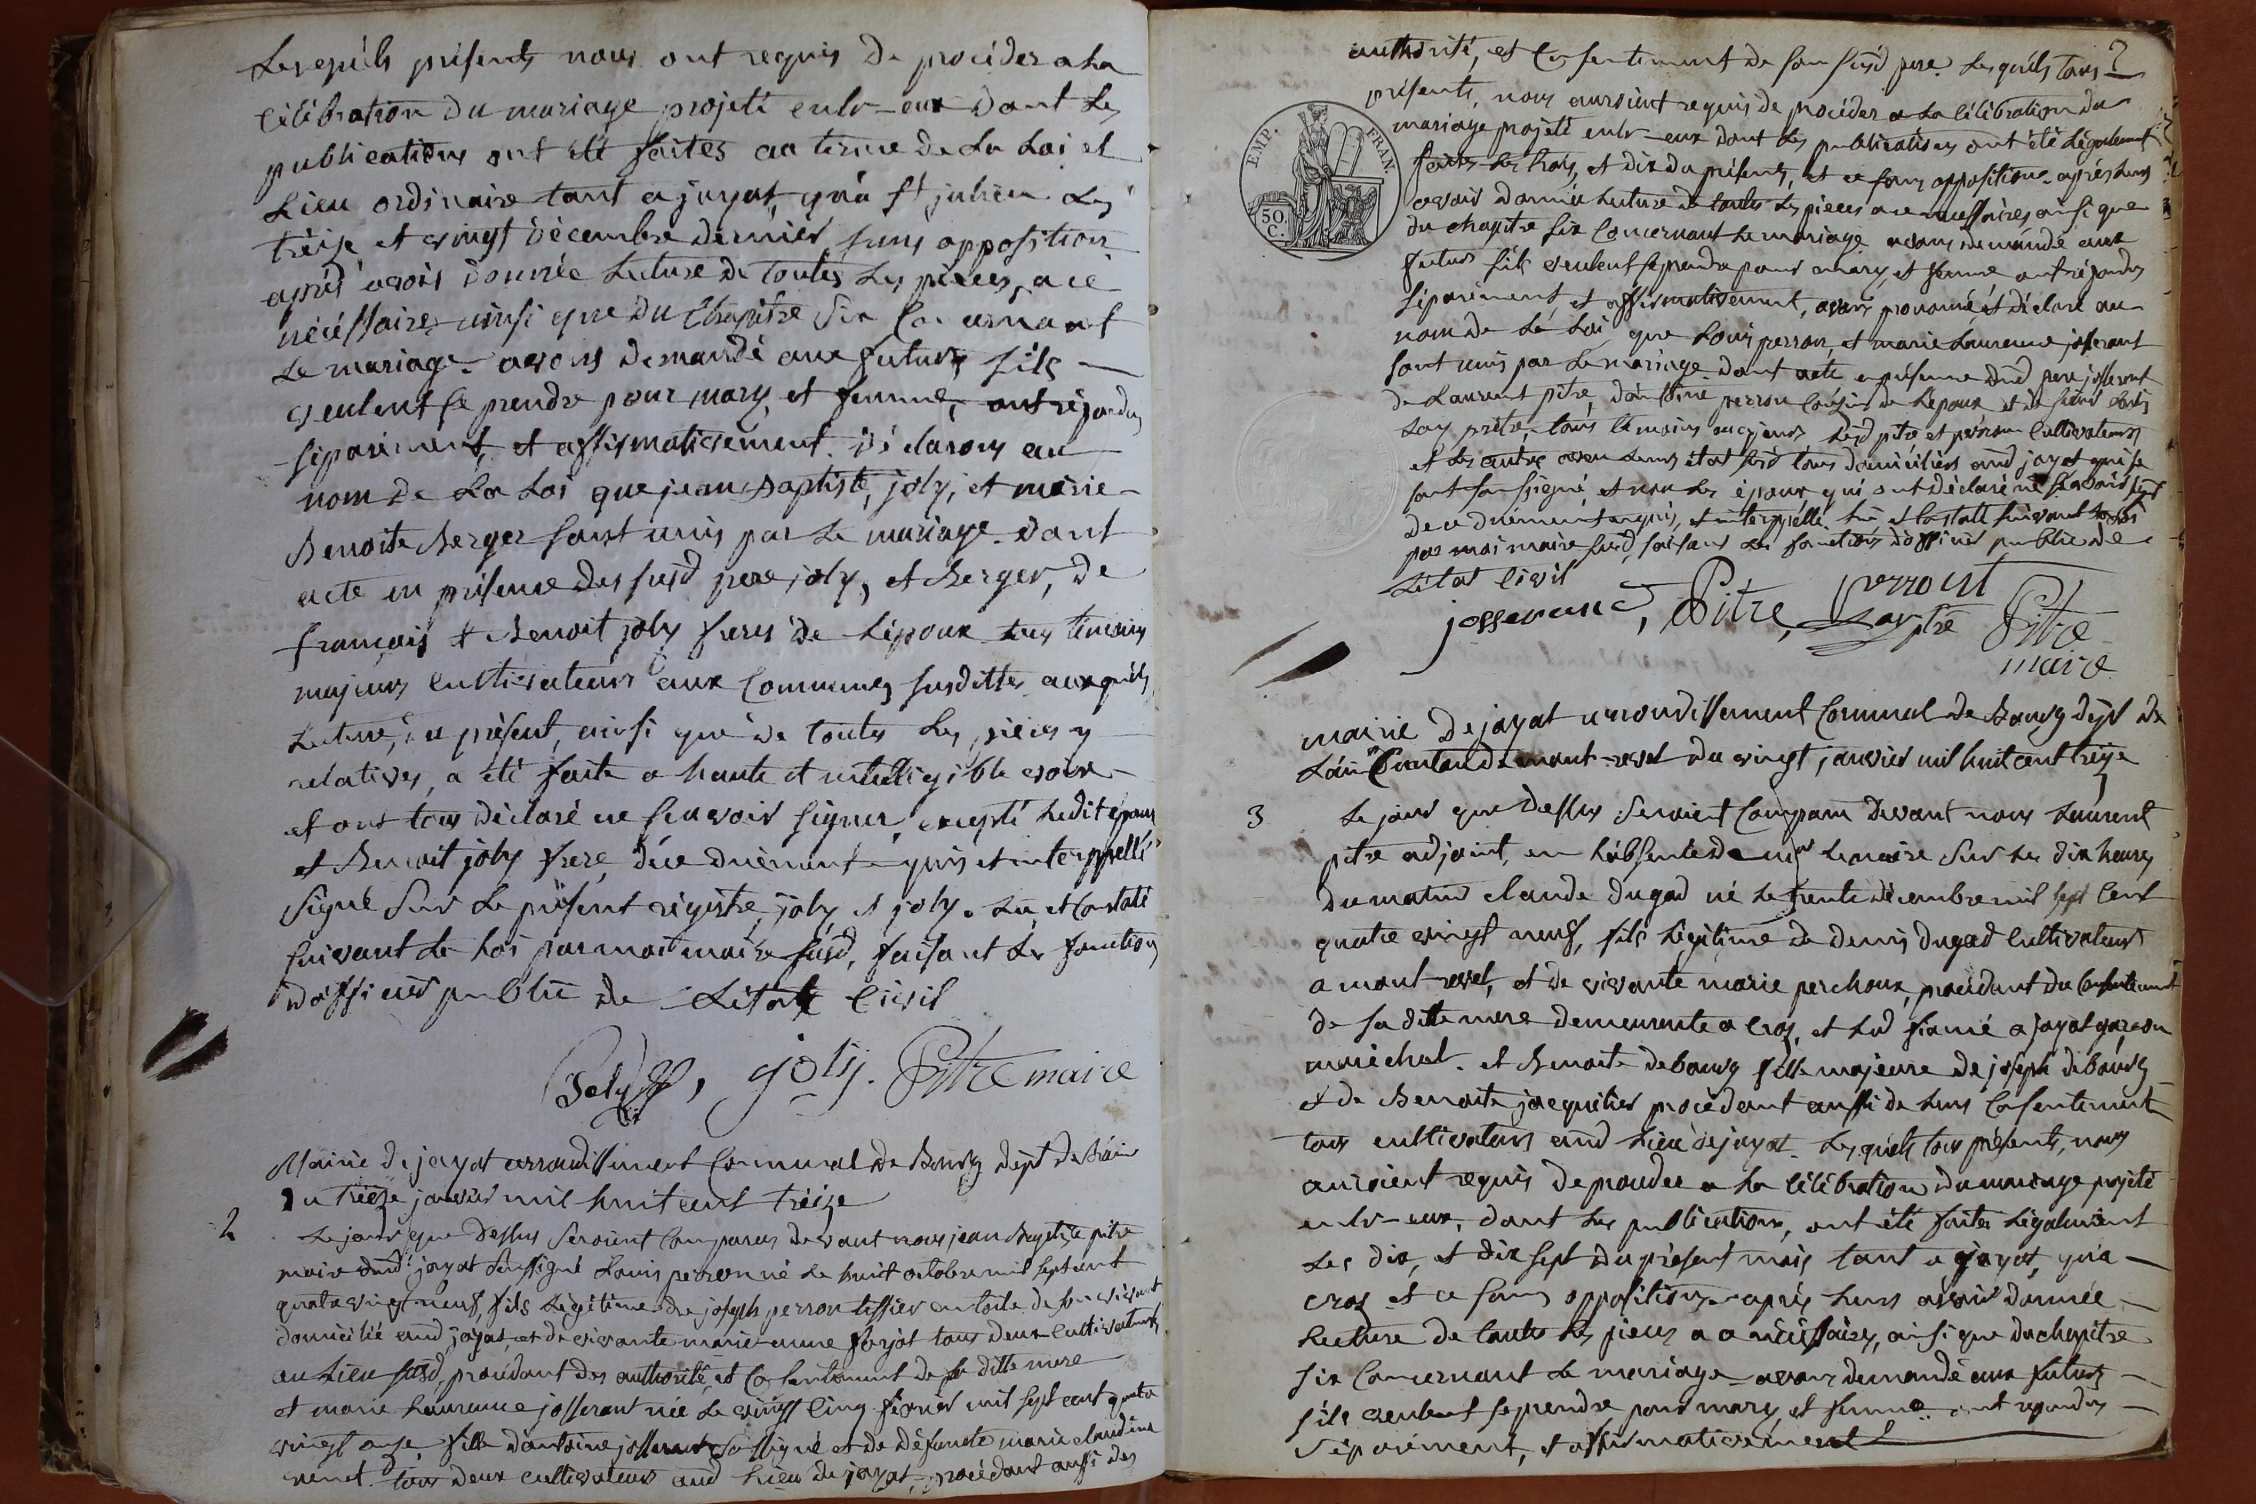 Lesquéls présents nous ont requis de procéder a la
célébration du mariage projeté entr-eux dont les
publications ont été faites au terme de la Loi et
Lieu ordinaire tant a jayat, qu'a St julien les
tréize et vingt décembre dernier sans opposition
aprés avoir donnée Lecture de toutes Les pièces, a ce
nécéssaires ainsi que du Chapitre Six Concernant
Le mariage avons demandé aux futurs s'ils
veulent se prendre pour mary, et femme, ont répondu
séparément, et affirmativement. Déclarons au
nom de La Loi que jean Baptiste, joly, et marie
Benoite Berger sont unis par Le mariage dont
acte en présence des susd pere joly, et Berger, de
françois & Benoit joly freres de L'époux tous témoins
majeurs cultivateurs aux Communes susdittes auxquéls
Lecture, du présent, ainsi que de toutes Les pièces y
rélatives, a été faite a haute et intelligible voix
et ont tous déclaré ne sçavoir signer, excepté Ledit époux
et Benoit joly frere, de ce duement requis et interppellé
signé Sur Le présent régistre, joly et joly. Lu, et Constaté
suivant La Loi par moi maire susd, faisant Les fonctions
d'officier public de L'état Civil
Joly, joly. Pitre maire
Mairie de jayat arrondissement Communal de Bourg dépt de L'ain
Du tréize janvier mil huit cent tréize
2 Le jour que Dessus Seroient Comparus devant nous jean Baptiste pitre
maire dud. jayat soussigné Louis perron né Le huit octobre mil sept cent
quatre vingt neuf, fils Légitime de joseph perron tissier en toile de son vivant
domicilié aud jayat, et de vivante marie anne forjat tous deux cultivateurs
au Lieu susd, procédant des authorité, et Consentement de sa ditte mere
et marie Laurence josserant née Le vingt Cinq février mil sept cent quatre
vingt onze fille d'antoine josserant soussigné et de défunte marie claudine
tous deux cultivateurs aud Lieu de jayat, procédant aussi des
authorité, et Consentement de son susd pere. Lesquéls tous
présents, nous auroient requis de procéder a La célébration du
mariage projeté entr-eux dont Les publications ont été Légalement
faites Les trois, et dix du présent, et ce sans opposition. aprés Leurs
avoir donnée Lecture de toutes Les pieces a ce necessaires ainsi que
du chapitre six Concernant Le mariage avons demandé aux
futurs s'ils veulent se prendre pour mary, et femme ont répondu
séparément, et affirmativement, avons prononcé et déclaré au
nom de La Loi, que Louis perron, et marie Laurence josserant
sont unis par Le mariage dont acte en présence dud pere josserant
de Laurent pitre, d'antoine perron Cousin de L'époux et de
Lay prêtre, tous témoins majeurs, Lesd pitre et perron cultivateurs
et Les autres état susd tous domiciliés aud jayat qui se
sont soussigné, et non Les époux qui ont déclaré ne sçavoir signer
de ce duement requis, et interppéllé. Lu, et Constaté suivant La Loi
par moi maire susd, faisant Les fonctions d'officier public de
L'état Civil
josserand, Pitre, perront
Lay ptre Pitre
maire
EMP. FRAN.
50.
C.
mairie de jayat arrondissement Communal de Bourg dépt de
L'ain Canton de mont-revel du vingt janvier mil huit cent treize
3 Le jour que Dessus Seroient Comparu devant nous Laurent
pitre adjoint, en L'absence de mr Le maire Sur Les dix heures
du matin claude dugad né Le trente décembre mil sept Cent
quatre vingt neuf, fils Légitime de denis dugad Cultivateur
a mont-revel, et de vivante marie perchoux, procédant du Consentement
de sa ditte mere demeurente a Cras, et Lud fiancé a jayat garcon
maréchal. et Benoite debourg fille majeure de joseph debourg
& de Benoite jacquitier procédent aussi de Leurs Consentement
tous cultivateurs aud Lieu de jayat. Lesquéls tous présents, nous
auroient requis de procedee a La célébration du mariage projeté
entr-eux, dont Les publications, ont été faites Légalement
Les dix, et dix sept du présent mois tant a jayat, qu'a
Cras et ce sans opposition. aprés Leurs avoir donnée
Lecture de toutes Les pieces a ce nécéssaires, ainsi que du chapitre
six Concernant Le mariage avons demandé aux futurs
s'ils veulent se prendre pour mary, et femme ont repondus
séparément, et affirmativement